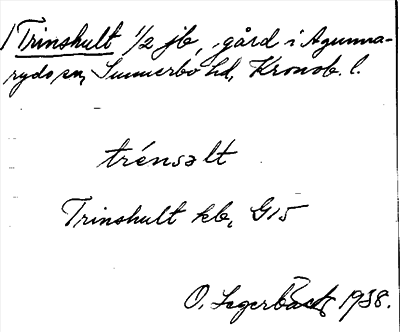 Trinshult 1/2 jb, gård i Agunna-
ryds sn, Sunnerbo hd, Kronob. l.
trénsalt
Trinshult kb, G15
O. Segerbäck 1938.